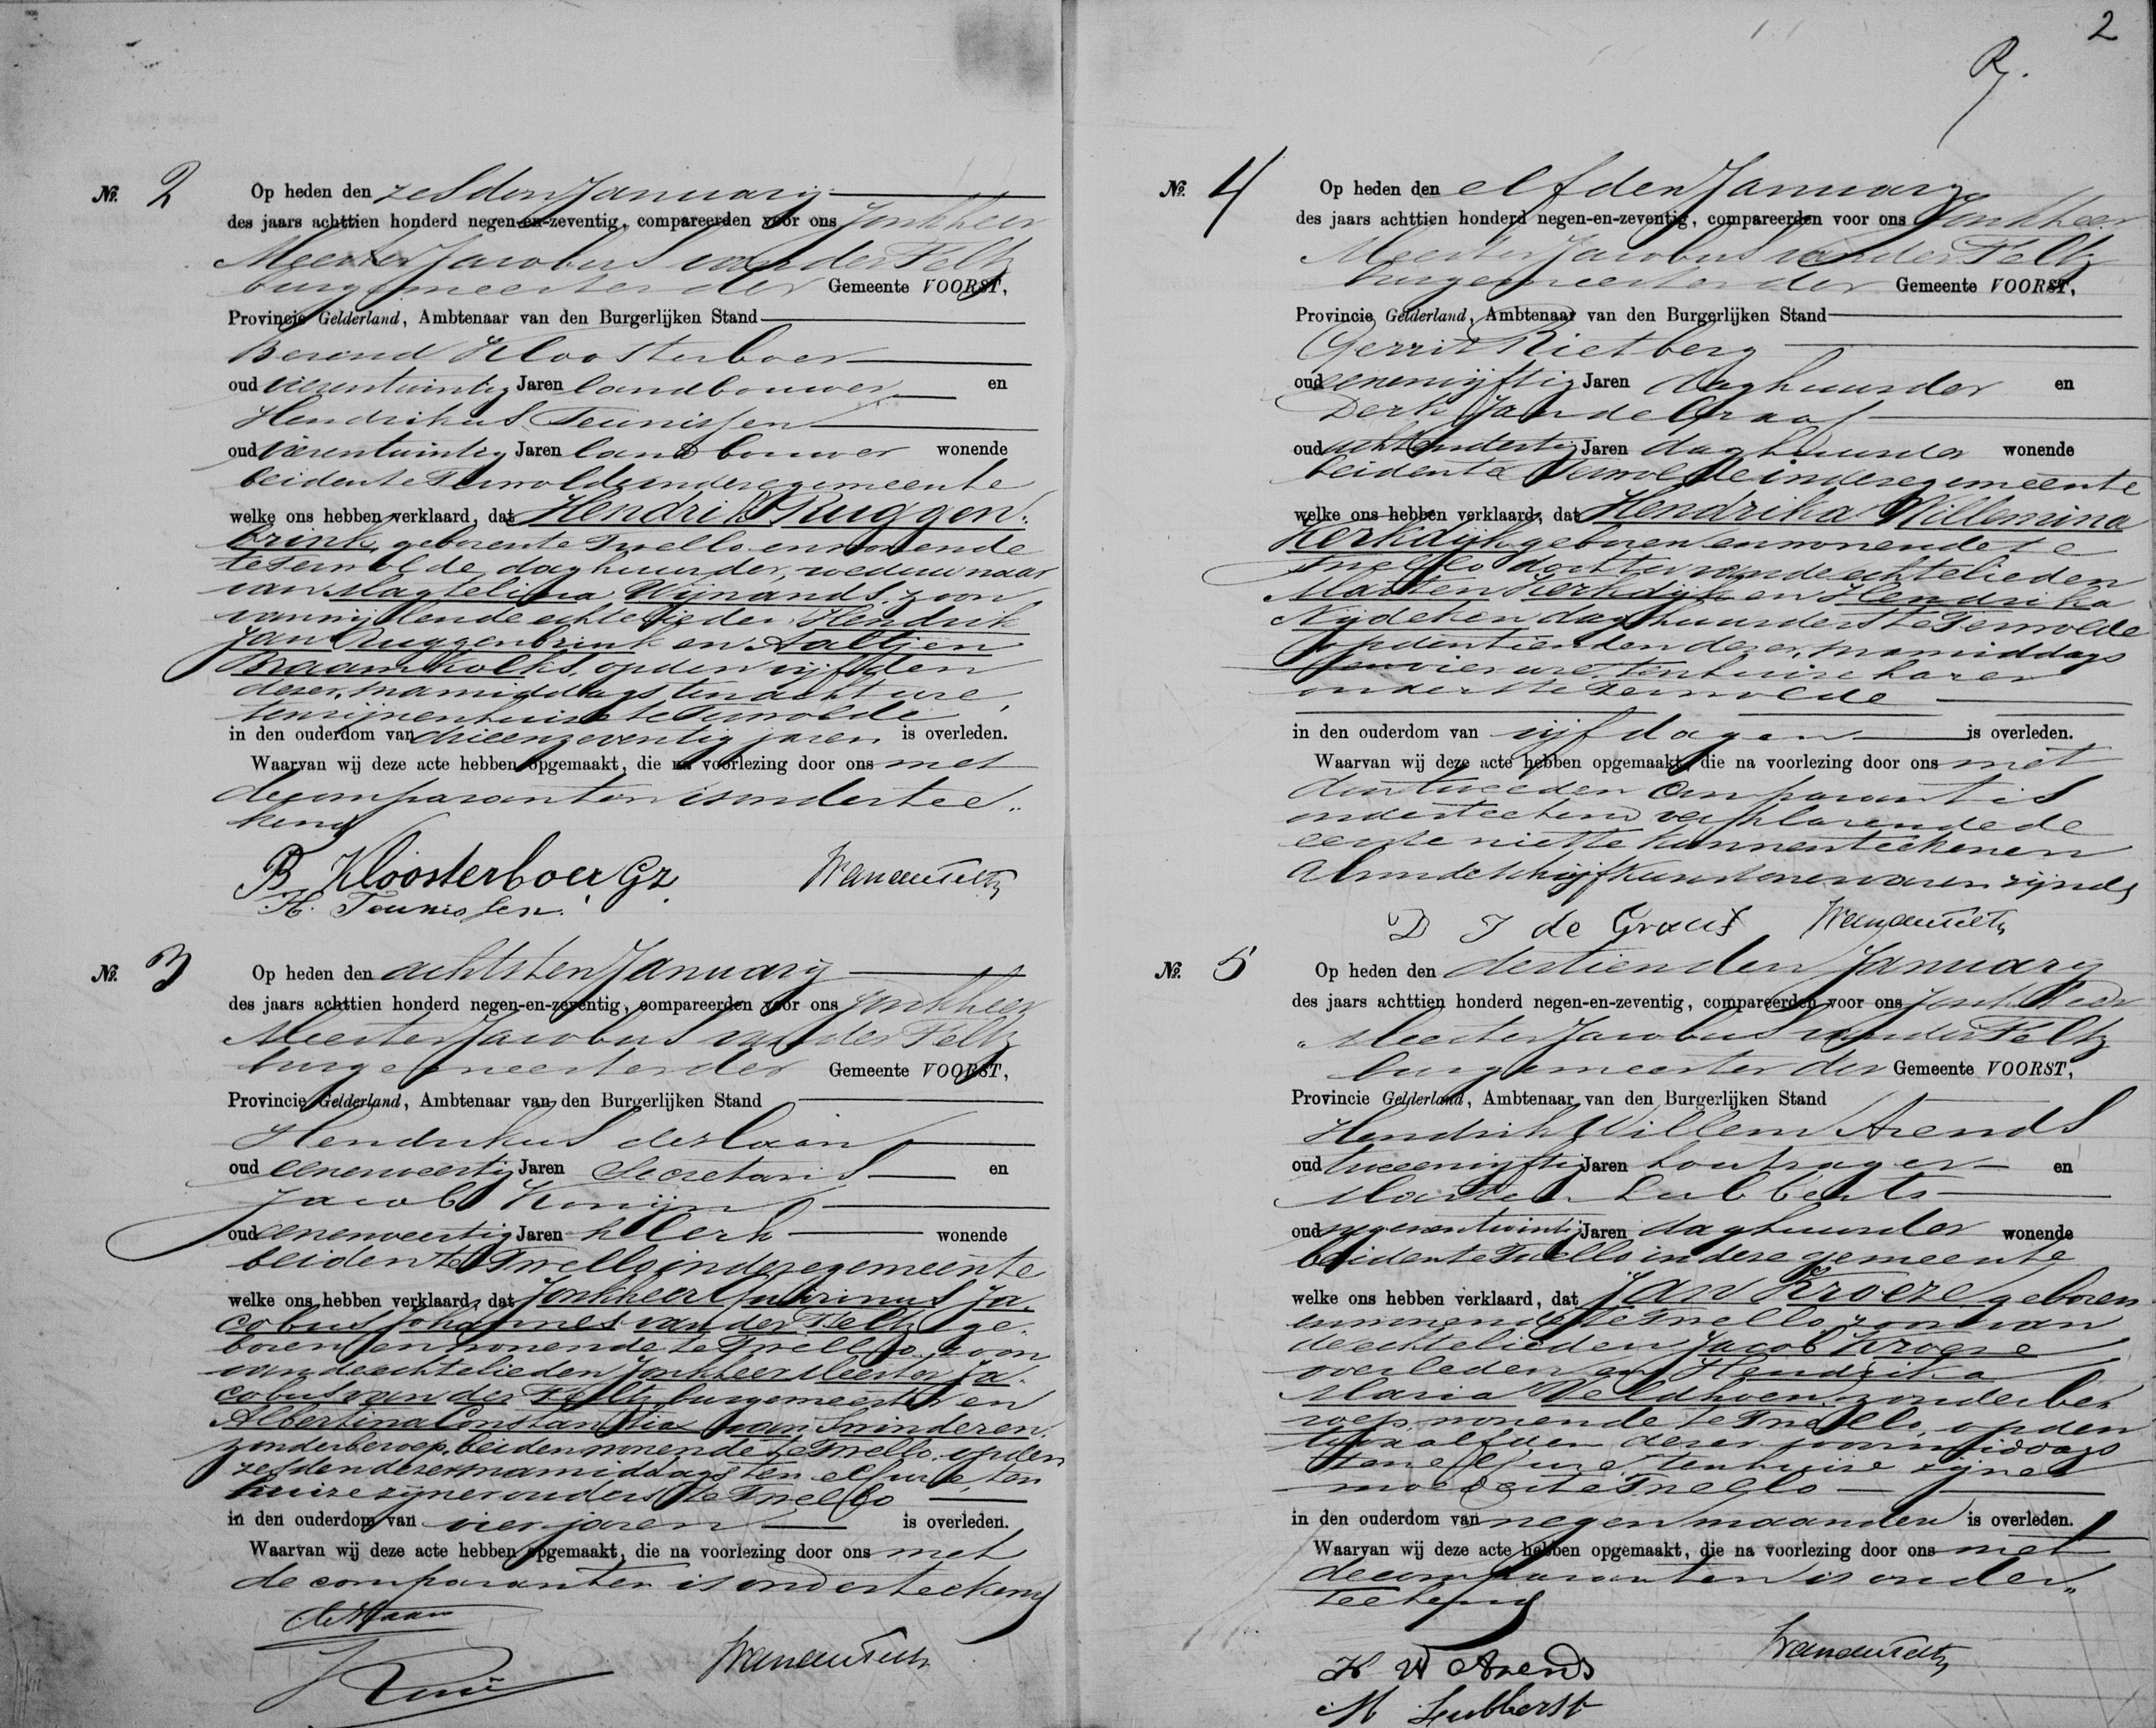 2
No. 2 Op heden den zesden January
des jaars achttien honderd negen-en-zeventig, compareerden voor ons Jonkheer
Meester Jacobus van der Feltz
burgemeester der Gemeente VOORST,
Provincie Gelderland, Ambtenaar van den Burgerlijken Stand
Berend Kloosterboer
oud vierentwintig Jaren landbouwer en
Hendrikus Teunissen
oud vierentwintig Jaren landbouwer wonende
beiden te Terwolde in deze gemeente
welke ons hebben verklaard, dat Hendrik Ruggen-
brink, geboren te Twello en wonende
te Terwolde, daghuurder, weduwnaar
van Magtelina Wijnands, zoon
van wijlende echtelieden Hendrik
Jan Ruggenbrink en Aaltjen
Braamkolk, op den vijfden
dezer, namiddags ten acht ure,
ten zijnen huize te Terwolde
in den ouderdom van drieenzeventig jaren is overleden.
Waarvan wij deze acte hebben opgemaakt, die na voorlezing door ons met
de comparanten is onderteekend
B Kloosterboer Gz.
H. Teunissen.
No. 3 Op heden den achtsten January
des jaars achttien honderd negen-en-zeventig, compareerden voor ons Jonkheer
Meester Jacobus van der Feltz
burgemeester der Gemeente VOORST,
Provincie Gelderland, Ambtenaar van den Burgerlijken Stand
Hendrikus der
oud eenenveertig Jaren Secretaris en
Jacob Konijn
oud eenenveertig Jaren klerk wonende
beiden te Twello in deze gemeente
welke ons hebben verklaard, dat Jonkheer Ja-
cobus Johannes van der Feltz ge-
boren en wonende te Twello, zoon
van de echtelieden Jonkheer Meester Ja-
cobus van der Feltz, burgemeester en
Albertina Constantia van Swinderen,
zonder beroep, beiden wonende te Twello, op den
zesden dezer, namiddags ten elf ure, ten
huize zijner ouders te Twello
in den ouderdom van vier jaren is overleden.
Waarvan wij deze acte hebben opgemaakt, die na voorlezing door ons met
de comparanten is onderteekend
No. 4 Op heden den elfden January
des jaars achttien honderd negen-en-zeventig, compareerden voor ons Jonkheer
Meester Jacobus van der Feltz
burgemeester der Gemeente VOORST,
Provincie Gelderland, Ambtenaar van den Burgerlijken Stand
Gerrit Rietberg
oud eenenvijftig Jaren daghuurder en
Derk Jan de Graaf
oud achtendertig Jaren daghuurder wonende
beiden te Terwolde in deze gemeente
welke ons hebben verklaard, dat Hendrika Willemina
Kerkdijk geboren en wonende te
Twello dochter van de echtelieden
Marten Kerkdijk en Hendrika
Nijdeken daghuurders te Terwolde
op den tienden dezer, namiddags
ten vier ure, ten huize harer
ouders te Terwolde
in den ouderdom van vijf dagen is overleden.
Waarvan wij deze acte hebben opgemaakt, die na voorlezing door ons met
den tweeden comparant is
onderteekend verklarende de
eerste niet te kunnen teekenen
als in de schrijfkunst onervaren zijnde
D J de Graaf
No. 5 Op heden den dertienden January
des jaars achttien honderd negen-en-zeventig, compareerden voor ons Jonkheer
Meester Jacobus van der Feltz
burgemeester der Gemeente VOORST,
Provincie Gelderland, Ambtenaar van den Burgerlijken Stand
Hendrik Willem Arends
oud tweeenvijftig Jaren en
Marten Lubberts
oud negenentwintig Jaren daghuurder wonende
beiden te Twello in deze gemeente
welke ons hebben verklaard, dat Jan Kroeze geboren
en wonende te Twello zoon van
de echtelieden Jacob Kroeze
overleden en Hendrika
Maria Veldhoen, zonder be-
roep, wonende te Twello, op den
twaalfden dezer voormiddags
ten elf ure, ten huize zijner
moeder te Twello
in den ouderdom van negen maanden is overleden.
Waarvan wij deze acte hebben opgemaakt, die na voorlezing door ons met
de comparanten is onder-
teekend
H W Arends
M Lubberst